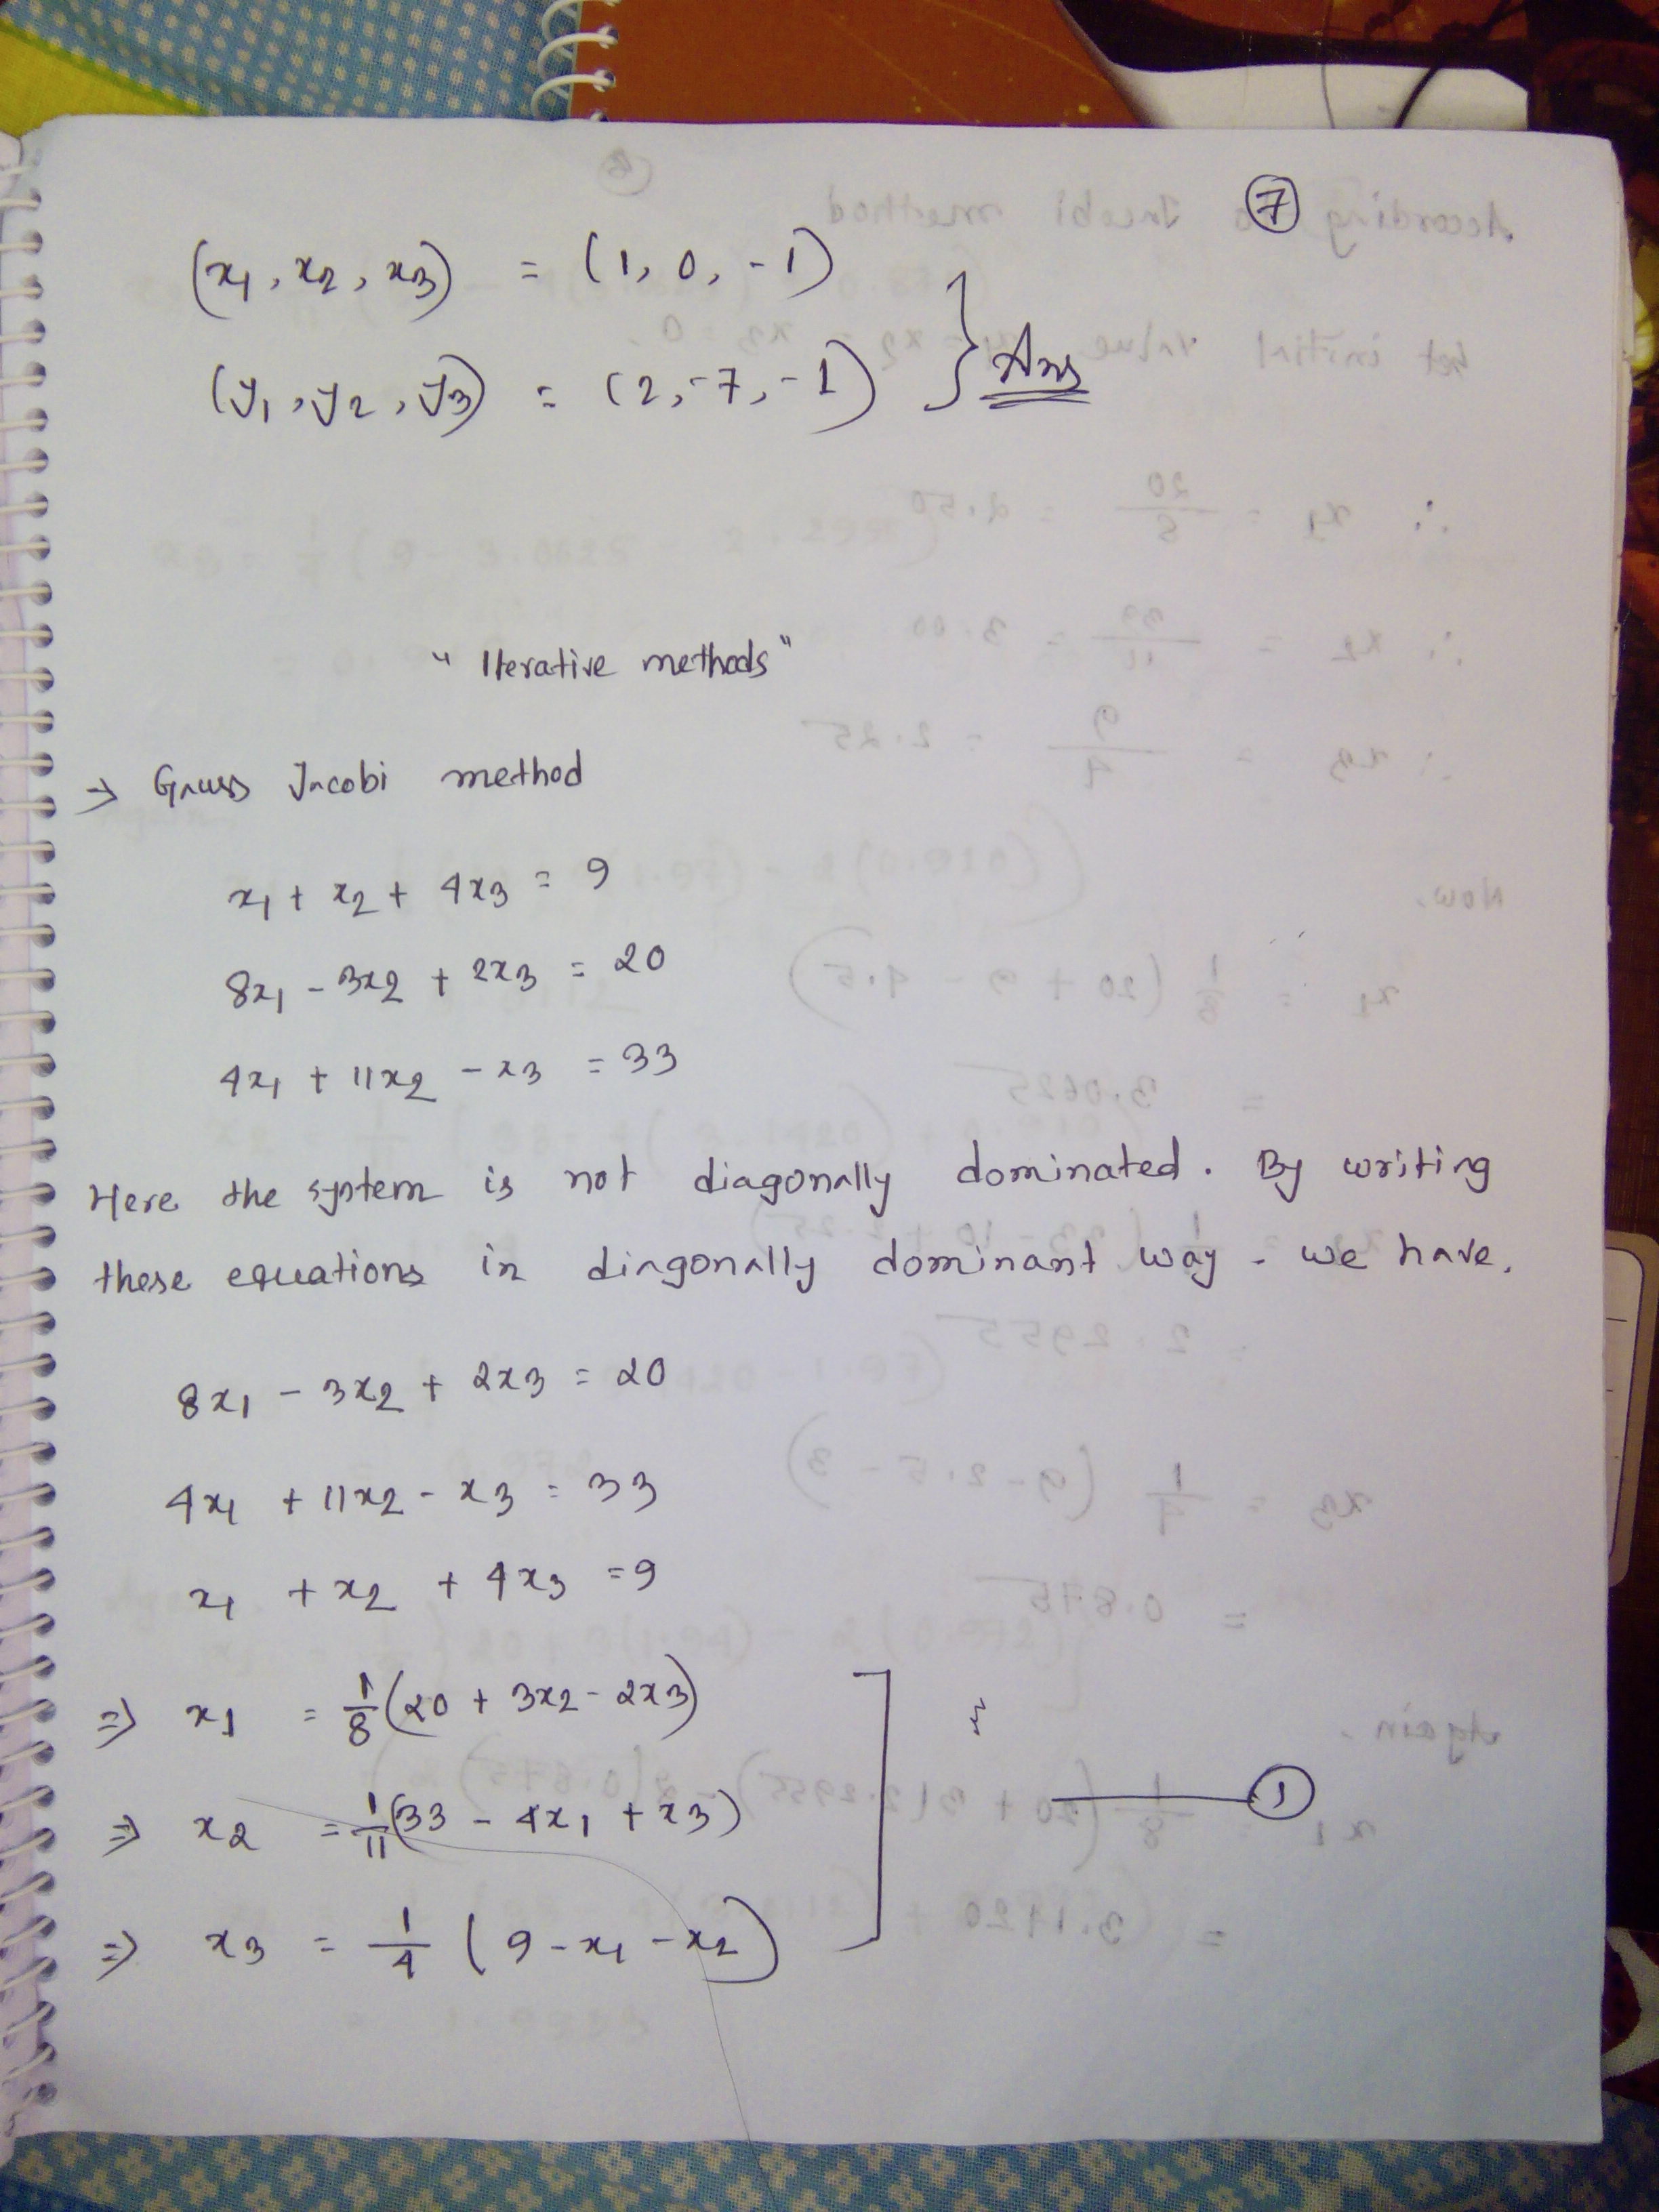 7
(x1, x2, x3) = (1, 0, -1)
(y1, y2, y3) = (2, -7, -1)
Ans
" Iterative methods "
⇒ Gauss Jacobi method
x1 + x2 + 4x3 = 9
8x1 - 3x2 + 2x3 = 20
4x1 + 11x2 - x3 = 33
Here the system is not diagonally dominated. By writing
these equations in diagonally dominant way - we have,
8x1 - 3x2 + 2x3 = 20
4x1 + 11x2 - x3 = 33
x1 + x2 + 4x3 = 9
⇒ x1 = 1/8 (20 + 3x2 - 2x3)
⇒ x2 = 1/11 (33 - 4x1 + x3)
1
⇒ x3 = 1/4 (9 - x1 - x2)